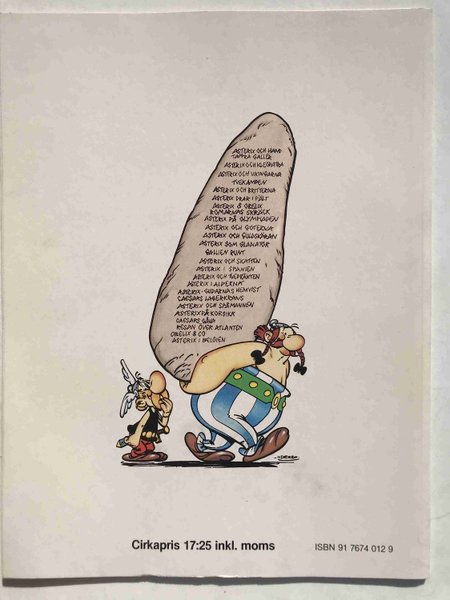 ASTERIX OCH HANS
TAPPRA GALLER
ASTERIX OCH KLEOPATRA
ASTERIX OCH VIKINGARNA
TVEKAMPEN
ASTERIX OCH BRITTERNA
ASTERIX DRAR I FÄLT
ASTERIX & OBELIX
ROMARNAS SKRÄCK
ASTERIX PÅ OLYMPIADEN
ASTERIX OCH GOTERNA
ASTERIX OCH GULDSKÄRAN
ASTERIX SOM GLADIATOR
GALLIEN RUNT
ASTERIX OCH SKATTEN
ASTERIX I SPANIEN
ASTERIX OCH TVEDRÄKTEN
ASTERIX I ALPERNA
ASTERIX-GUDARNAS HEMVIST
CAESARS LAGERKRANS
ASTERIX OCH SPÅMANNEN
ASTERIX PÅ KORSIKA
CAESARS GÅVA
RESAN ÖVER ATLANTEN
OBELIX & CO
ASTERIX I BELGIEN
Cirkapris 17:25 inkl. moms
ISBN 91 7674 012 9